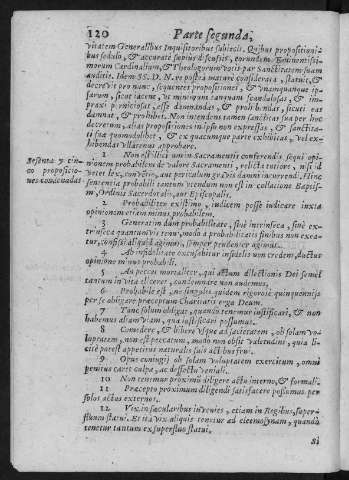 120 Parte segunda,
vitatem Generalibus Inquisitoribus subiecit. Quibus propositioni-
bus sedulo, & accuratè sæpius discussis, eorundem Eminentissi-
morum Cardinalium, & Theologorum votis per Sanctitatem suam
auditis. Idem SS. D. N. re postea maturè considerata, statuit, &
decrevit pro nunc, sequentes propositiones, & unamquamque ip-
sarum, sicut iacent, ut minimum tanquam scandalosas, & im-
praxi perniciosas, esse damnandas, & prohibendas, sicuti eas
damnat, & prohibet. Non intendens tamen sanctitas sua per hoc
decretum, alias propositiones in ipso non expressas, & sanctita-
ti suæ quomodolibet, & ex quacumque parte exhibitas, vel ex-
hibendas ullatenus approbare.
Sesenta y cin-
co proposicio-
nes condenadas
1 Non est illicitum in Sacramentis conferendis sequi opi-
nionem probabilem de valore Sacramenti, relicta tutiore, nisi id
vetet lex, conventio, aut periculum gravis damni incurrendi. Hinc
sententia probabili tantum utendum non est in collatione Baptis-
mi, Ordinis Sacerdotalis, aut Episcopalis.
2 Probabiliter existimo, iudicem posse iudicare iuxta
opinionem etiam minus probabilem.
3 Generatim dum probabilitate, sivè intrinseca, sivè ex-
trinseca quantumvis tenui, modo à probabilitatis finibus non exea-
tur, confisi aliquid agimus, semper prudenter agimus.
4 Ab infidelitate excusabitur infidelis non credens, ductus
opinione minus probabili.
5 An peccet mortaliter, qui actum dilectionis Dei semel
tantum in vita eliceret, condemnare non audemus.
6 Probabile est, ne singulis quidem rigorosè quinquenniis
per se obligare præceptum Charitatis erga Deum.
7 Tunc solum obligat, quando tenemur iustificari, & non
habemus aliam viam, qua iustificari possumus.
8 Comedere, & bibere usque ad satietatem, ob solam vo-
luptatem, non est peccatum, modo non obsit valetudini, quia li-
citè potest appetitus naturalis suis actibus frui.
9 Opus coniugij ob solam voluptatem exercitum, omni
penitus caret culpa, ac defectu veniali.
10 Non tenemur proximum diligere actu interno, & formali.
11 Præcepto proximum diligendi satisfacere possumus per
solos actus externos.
12 Vix in sæcularibus invenies, etiam in Regibus, super-
fluum statui. Et ita vix aliquis tenetur ad eleemosynam, quando
tenetur tantum ex superfluo statui.
Si